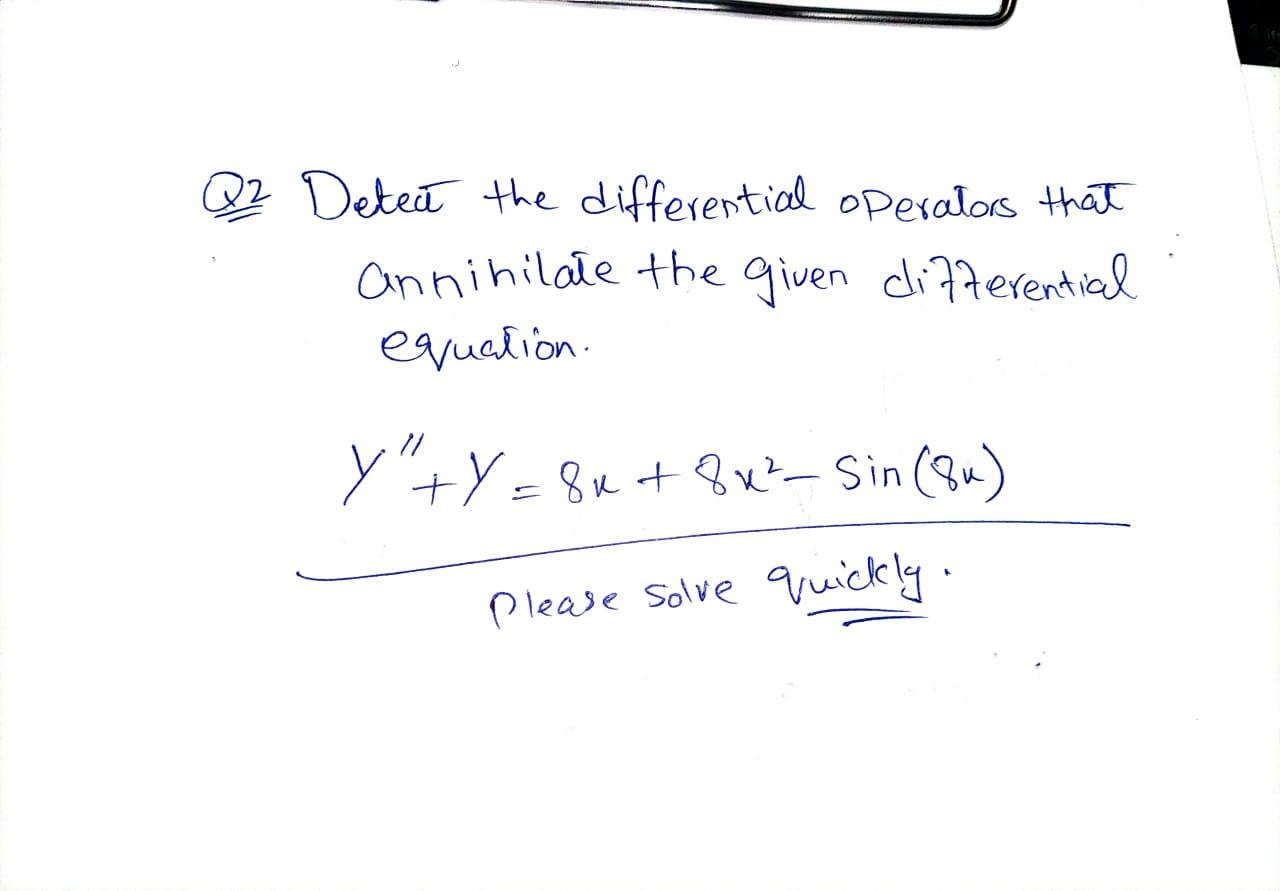 Q2 Detect the differential operators that
annihilate the given differential
equation.
y"+y = 8x + 8x² - Sin(8x)
please solve quickly.